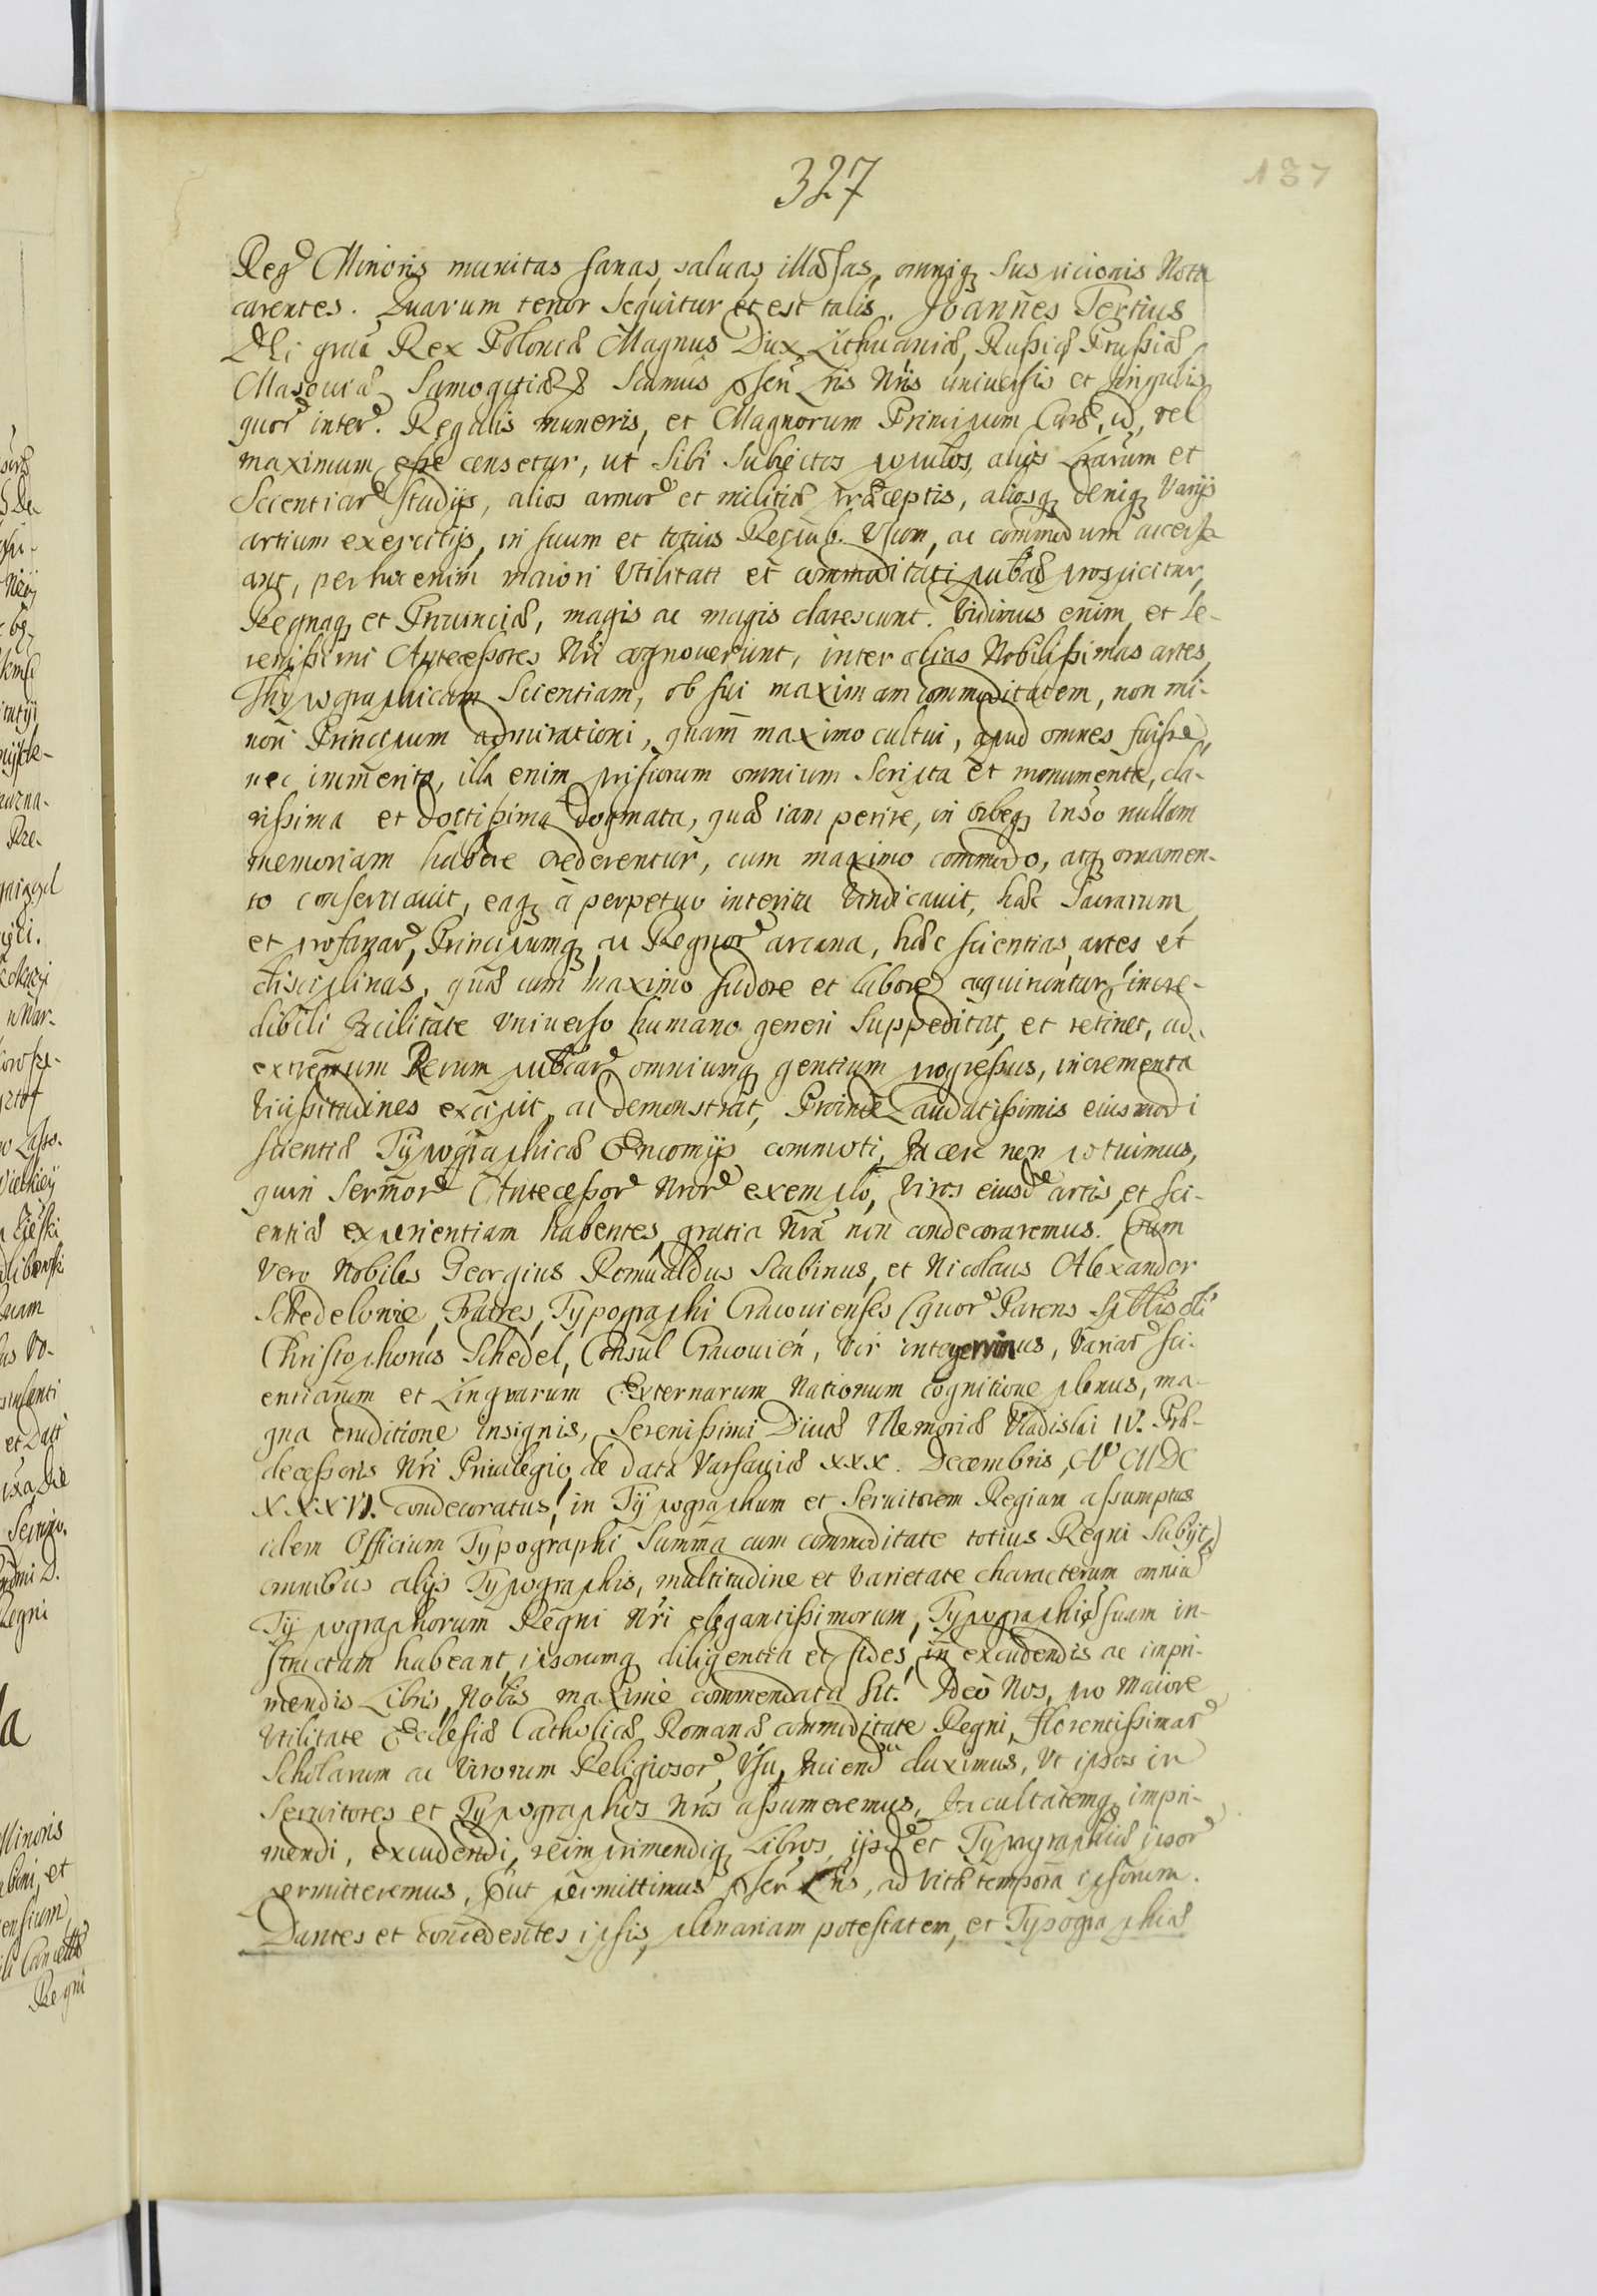 327
137
Reg. Minoris munitas sanas, saluas, illæsas, omniq; suspicionis Nota
carentes. Quarum tenor sequitur et est talis. Joannes Tertius
Dei gratia Rex Poloniæ Magnus Dux Lithuaniæ, Russiæ Prussiæ
Masouiæ Samogitiæ &c Scimus pñsen Lris Nris uniuersis et singulis
quor̃ inter̃. Regalis muneris, et Magnorum Principum Curæ, id, vel
maximum esse censetur, ut sibi subiectos populos, alios Lrarum et
Scientiar̃ studijs, alios armor̃ et militiæ præceptis, aliosq; deniq; varijs
artium exercitijs, in suum et totius Reipub. Vsum, ac commodum accerse-
ant, per hoc enim maiori Vtilitati et commoditati pubcæ prospicitur,
Regnaq; et Prouinciæ, magis ac magis clarescunt. Vidimus enim, et Se-
renissimi Antecessores Nri cognouerunt, inter alias Nobilissimas artes,
Thypographicam Scientiam, ob sui maximam commoditatem, non mi-
nori Principum admirationi, quam maximo cultui, apud omnes fuisse,
nec immerito, illa enim priscorum omnium Scripta et monumenta, cla-
rissima et doctissima dogmata, quæ iam perire, in orbeq; Vniuerso nullam
memoriam habere crederentur, cum maximo commodo, atq; ornamen-
to conseruauit, eaq; à perpetuo interitu Vindicauit, hæc Sacrarum
et profanar̃, Principumq; ac Regnor̃ arcana, hæc scientias, artes et
disciplinas, quæ cum maximo sudore et labore acquiruntur, incre-
dibili facilitate Vniuerso humano generi suppeditat, et retinet, ad
extremum Rerum pubcar̃ omniumq; gentium progressus, incrementa
Vicissitudines excipit, ac demonstrat, Proinde Laudatissimis eiusmodi
scientiæ Typographicæ Encomijs commoti, facere non potuimus,
quin Sermor̃ Antecessor̃ Nror̃ exemplo, Viros eiusd̃ artis, et sci-
entiæ experientiam habentes, gratia Nra non condecoraremus. Cum
Vero Nobiles Georgius Romualdus Scabinus, et Nicolaus Alexander
Schedelowie, Fratres, Typographi Cracouienses (quor̃ Parens Sptlis oli
Christophorus Schedel, Consul Cracouien, Vir integerrimus, Variar̃ sci-
entiarum et Linguarum Externarum Nationum cognitione plenus, ma-
gna eruditione insignis, Serenissimi Diuæ Memoriæ Vladislai IV. Præ-
decessoris Nri Priuilegio, de data Varsauiæ XXX. Decembris, Ao MDC
XXXVI. condecoratus, in Typographum et Seruitorem Regium assumptus
idem Officium Typographi Summa cum commoditate totius Regni Subijt,)
omnibus alijs Typographis, multitudine et Varietate characterum omnium
Typographorum Regni Nri elegantissimorum, Typographiã suam in-
structam habeant, ipsorumq; diligentia et fides, in excudendis ac impri-
mendis Libris, Nobis maxime commendata sit. Ideò Nos, pro Maiore
Vtilitate Ecclesiæ Catholicæ Romanæ commoditate Regni, florentissimar̃
Scholarum ac Virorum Religiosor̃, Vsu, faciendũ duximus, Vt ipsos in
Seruitores et Typographos Nros assumeremus, facultatemq; impri-
mendi, excudendi, reimprimendiq; Libros, ijsd̃ et Typographiæ ipsor̃
permitteremus, Put permittimus pñsen Lris, ad Vitæ tempora ipsorum.
Dantes et concedentes ipsis, plenariam potestatem, et Typographiæ